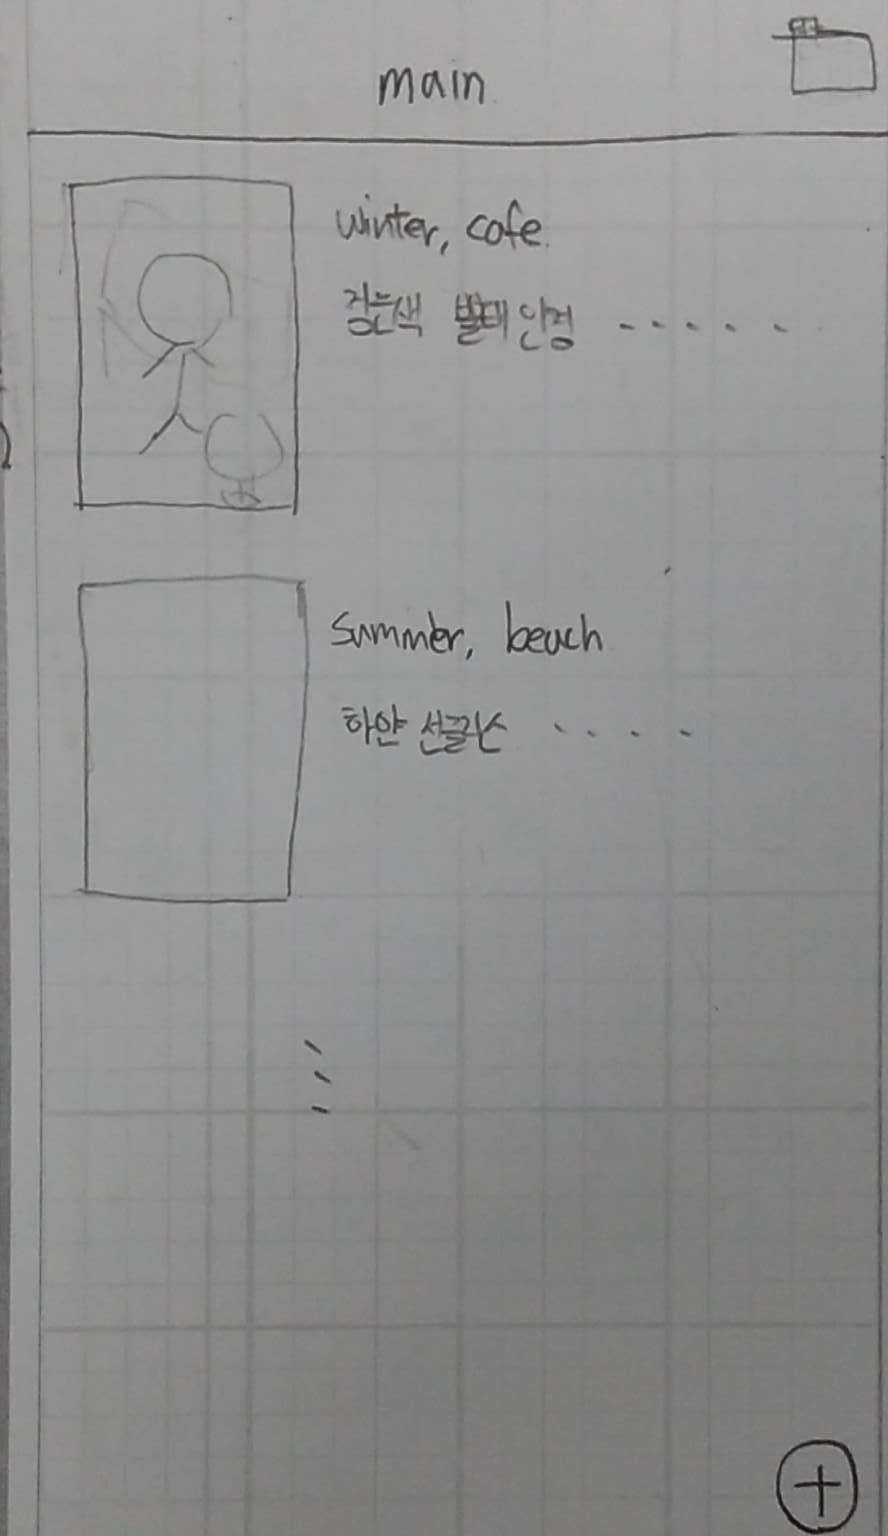 main
winter, cafe.
검은색 뿔테안경 ......
summer, beach
하얀 선글라스 ....